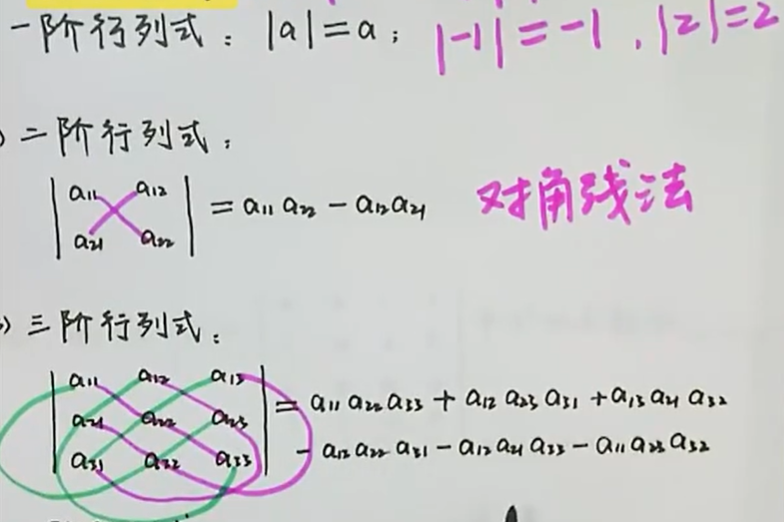 一阶行列式：|a|=a； |-1|=-1 . |2|=2
) 二阶行列式：
a₁₁ a₁₂
a₂₁ a₂₂
= a₁₁a₂₂ - a₁₂a₂₁ 对角线法
) 三阶行列式：
a₁₁ a₁₂ a₁₃
a₂₁ a₂₂ a₂₃
a₃₁ a₃₂ a₃₃
= a₁₁a₂₂a₃₃ + a₁₂a₂₃a₃₁ + a₁₃a₂₁a₃₂
- a₁₃a₂₂a₃₁ - a₁₂a₂₁a₃₃ - a₁₁a₂₃a₃₂